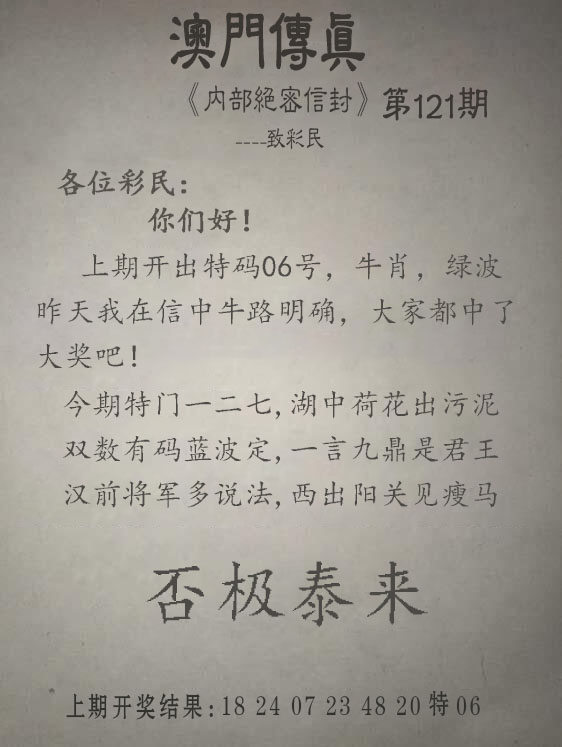 澳門傳真
《内部絕密信封》第121期
----致彩民
各位彩民：
你们好！
上期开出特码06号，牛肖，绿波
昨天我在信中牛路明确，大家都中了
大奖吧！
今期特门一二七,湖中荷花出污泥
双数有码蓝波定,一言九鼎是君王
汉前将军多说法,西出阳关见瘦马
否极泰来
上期开奖结果:18 24 07 23 48 20 特 06